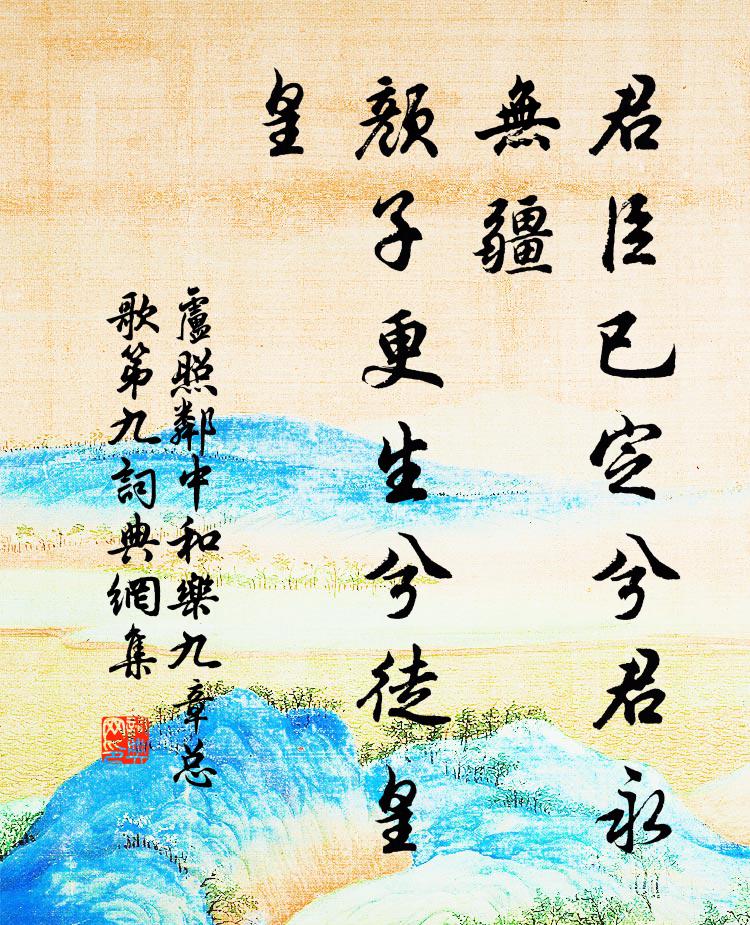 君臣已定兮君永
無疆
顏子更生兮徒皇
皇
盧照鄰中和樂九章总
歌第九詞典網集